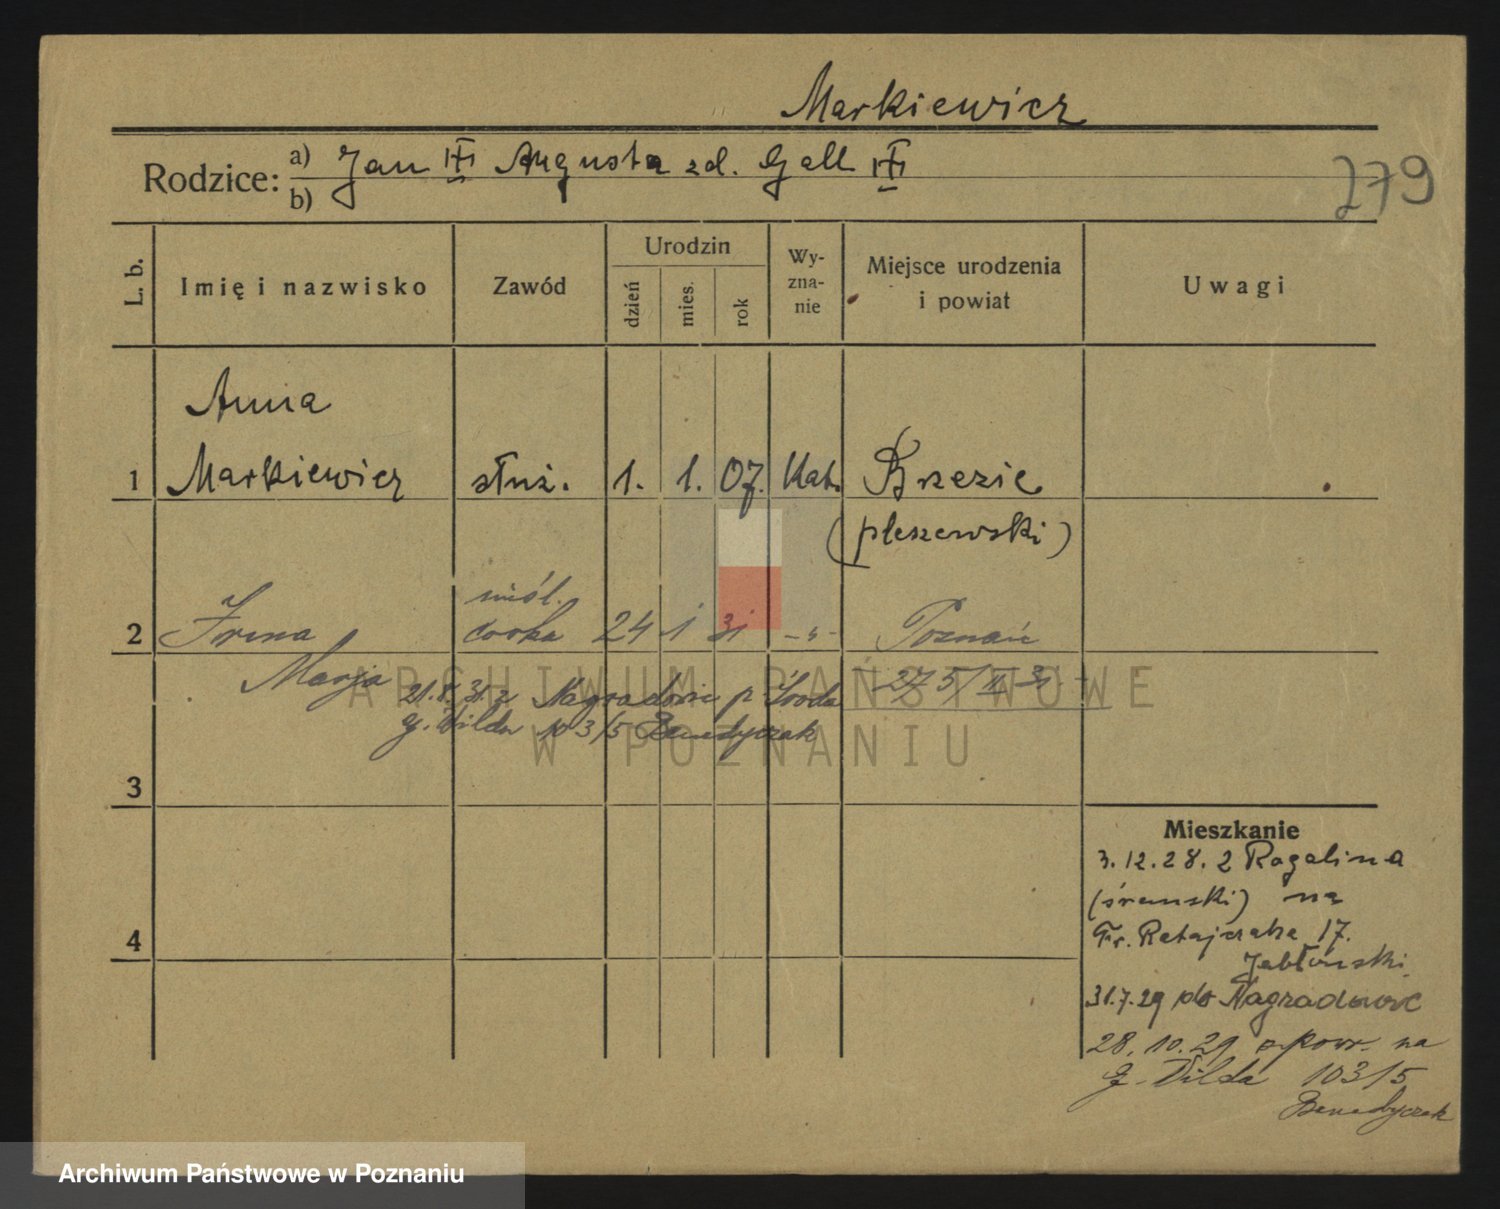 Markiewicz
Rodzice: a) Jan Augusta zd. Gall
b)
279
L. b.
Imię i nazwisko
Zawód
Urodzin
dzień
mies.
rok
Wy-
zna-
nie
Miejsce urodzenia
i powiat
Uwagi
Anna
1 Markiewicz służ. 1. 1. 07. Kat. Brzezie
(pleszewski)
nieśl.
2 Irena córka 24 1 31 -"- Poznań
Marja
21.8.31. z Nagradowic p Środa 275/II 31
g. Wilda 103/5 Benedyczak
3
4
Mieszkanie
3.12.28. z Rogalina
(śremski) na
Fr. Ratajczaka 17.
Jabłoński
31.7.29 do Nagradowic
28.10.29 powr. na
g. Wilda 103/5
Benedyczak
ARCHIWUM PAŃSTWOWE
W POZNANIU
Archiwum Państwowe w Poznaniu